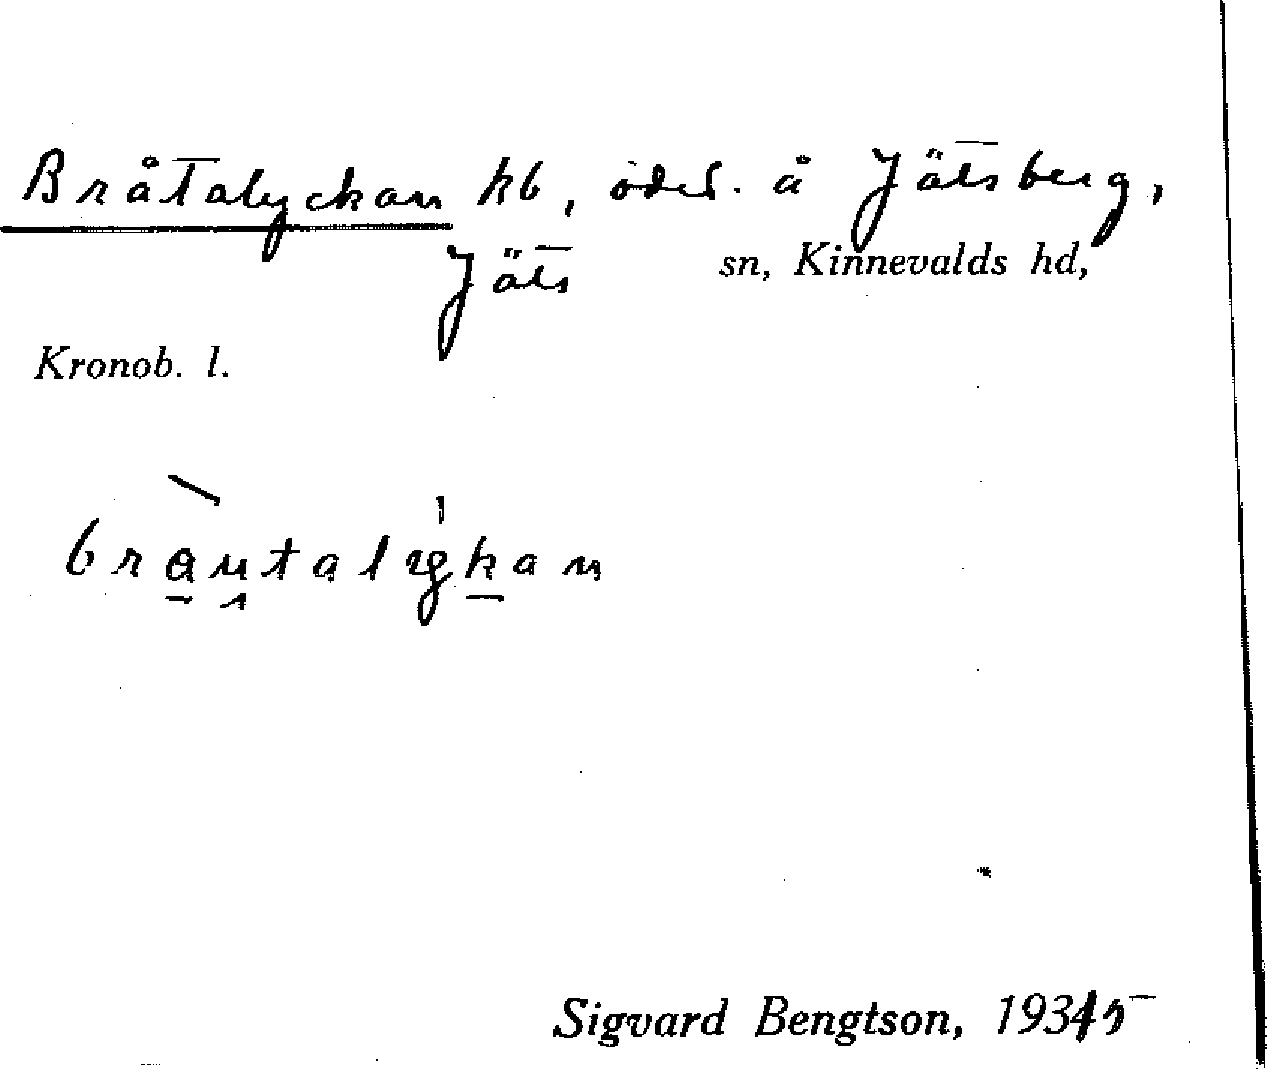 Bråtalyckan hb, ödel. å Jätsberg,
Jäts sn, Kinnevalds hd,
Kronob. l.
Sigvard Bengtson, 1935